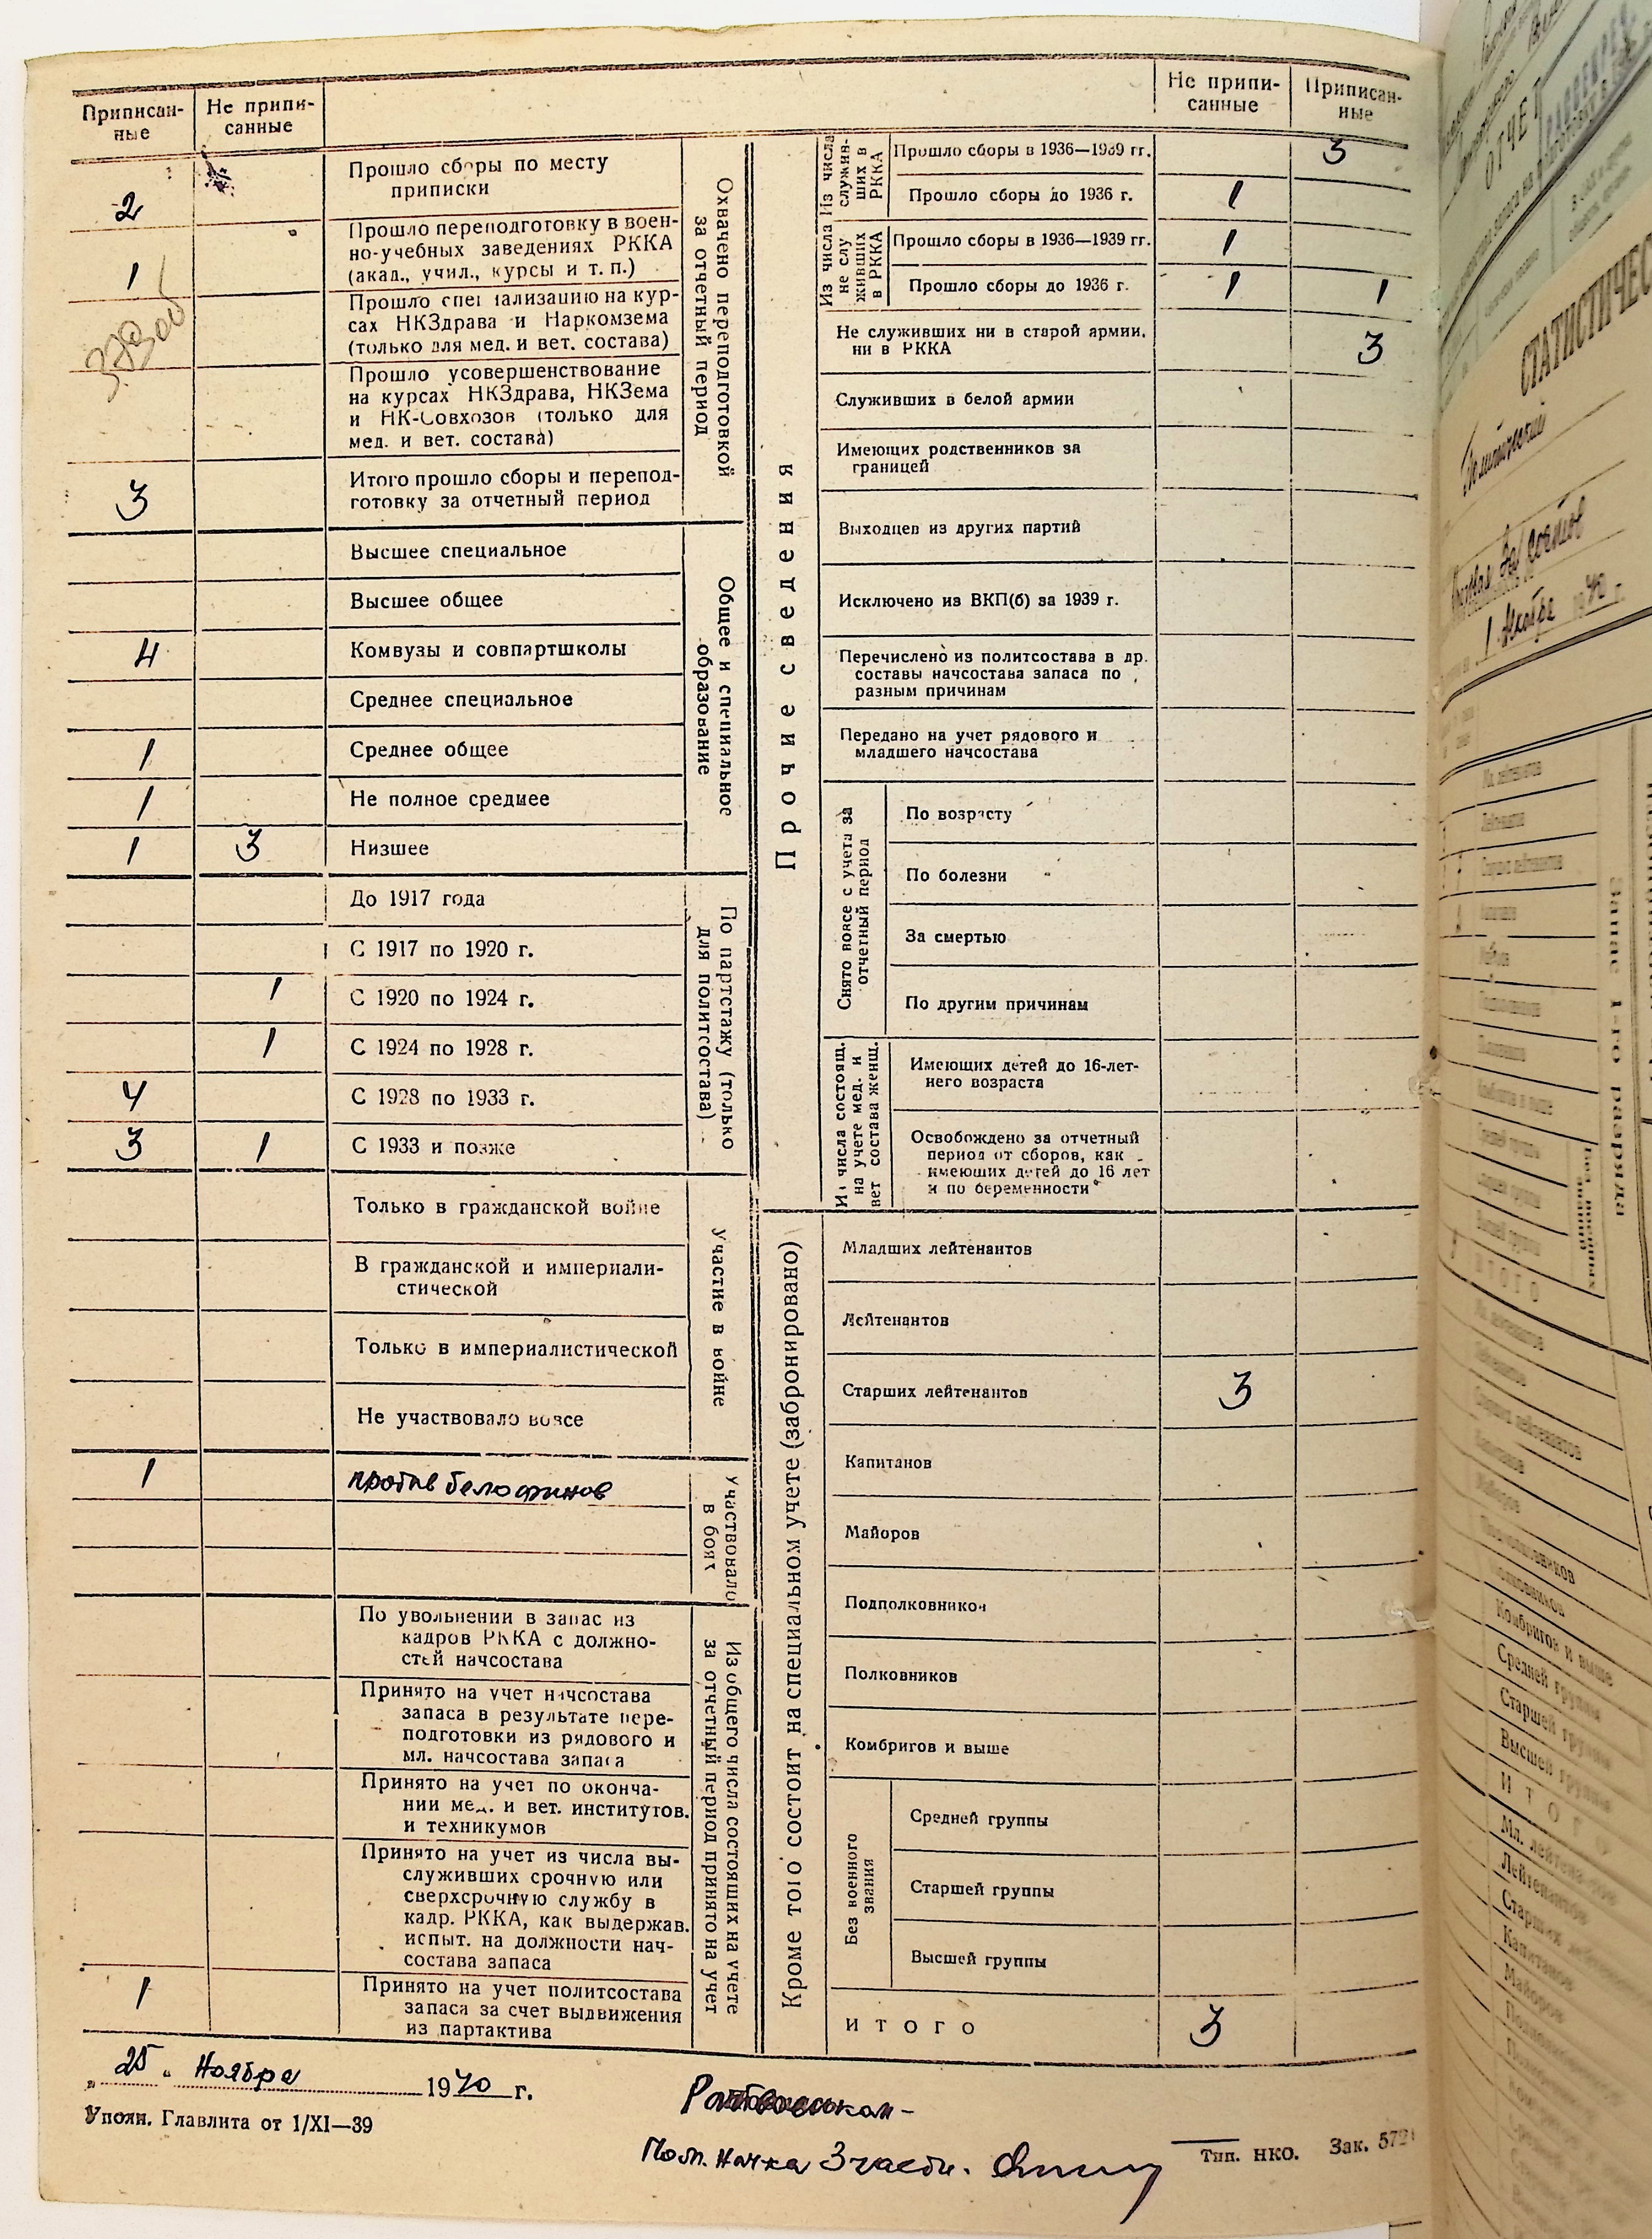 Приписан-
ные
Не припи-
санные
Не припи-
санные
Приписан-
ные
Охвачено переподготовкой
за отчетный период
2
Прошло сборы по месту
приписки
1
Прошло переподготовку в воен-
но-учебных заведениях РККА
(акад., учил., курсы и т. п.)
Прошло специализацию на кур-
сах НКЗдрава и Наркомзема
(только для мед. и вет. состава)
Прошло усовершенствование
на курсах НКЗдрава, НКЗема
и НК-Совхозов (только для
мед. и вет. состава)
3
Итого прошло сборы и перепод-
готовку за отчетный период
Общее и специальное
образование
Высшее специальное
Высшее общее
4 Комвузы и совпартшколы
Среднее специальное
1 Среднее общее
1 Не полное среднее
1 3 Низшее
По партстажу (только
для политсостава)
До 1917 года
С 1917 по 1920 г.
1 С 1920 по 1924 г.
1 С 1924 по 1928 г.
4 С 1928 по 1933 г.
3 1 С 1933 и позже
Участие в войне
Только в гражданской войне
В гражданской и империали-
стической
Только в империалистической
Не участвовало вовсе
Участвовало
в боях
1 против белофинов
Из общего числа состоящих на учете
за отчетный период принято на учет
По увольнении в запас из
кадров РККА с должно-
стей начсостава
Принято на учет начсостава
запаса в результате пере-
подготовки из рядового и
мл. начсостава запаса
Принято на учет по оконча-
нии мед. и вет. институтов.
и техникумов
Принято на учет из числа вы-
служивших срочную или
сверхсрочную службу в
кадр. РККА, как выдержав.
испыт. на должности нач-
состава запаса
1
Принято на учет политсостава
запаса за счет выдвижения
из партактива
Прочие сведения
Из числа
служив-
ших в
РККА
Прошло сборы в 1936—1939 гг. 3
Прошло сборы до 1936 г. 1
Из числа
не слу
живших
в РККА
Прошло сборы в 1936—1939 гг. 1
Прошло сборы до 1936 г. 1 1
Не служивших ни в старой армии,
ни в РККА 3
Служивших в белой армии
Имеющих родственников за
границей
Выходцев из других партий
Исключено из ВКП(б) за 1939 г.
Перечислено из политсостава в др.
составы начсостава запаса по
разным причинам
Передано на учет рядового и
младшего начсостава
Снято вовсе с учета за
отчетный период
По возрасту
По болезни
За смертью
По другим причинам
Из числа состоящ.
на учете мед. и
вет состава женщ.
Имеющих детей до 16-лет-
него возраста
Освобождено за отчетный
период от сборов, как
имеющих детей до 16 лет
и по беременности
Кроме того состоит на специальном учете (забронировано)
Младших лейтенантов
Лейтенантов
Старших лейтенантов 3
Капитанов
Майоров
Подполковников
Полковников
Комбригов и выше
Без военного
звания
Средней группы
Старшей группы
Высшей группы
ИТОГО 3
„25“ Ноября 1940 г.
Упоян. Главлита от 1/XI—39
Пом. нач-ка 3 части.
Тип. НКО. Зак. 572
ОТЧЕТ
СТАТИСТИЧЕС
Политический
1 декабря 1940 г.
Запас 1-го разряда
Подполковников
Комбригов и выше
Средней группы
Старшей группы
Высшей группы
ИТОГО
Мл. лейтенантов
Лейтенантов
Капитанов
Майоров